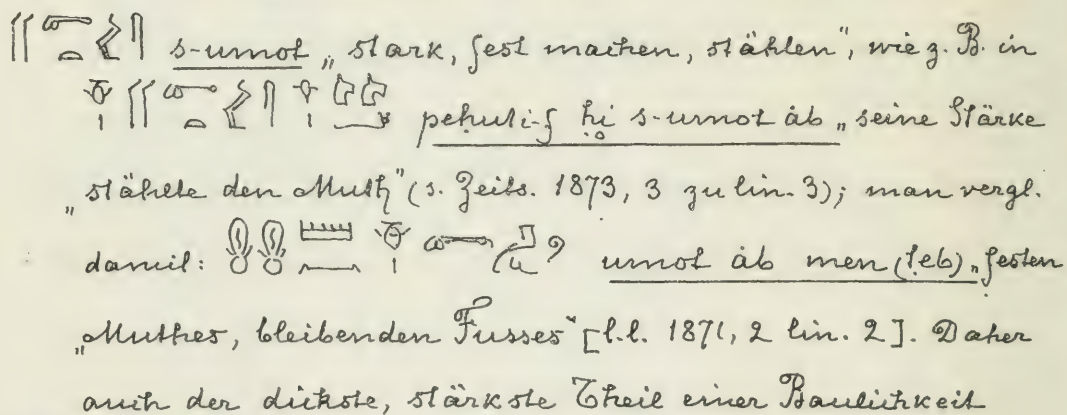 s-umot „stark, fest machen, stählen", wie z. B. in
peḥuti-f ḥi s-umot àb „seine Stärke
„stählte den Muth" (s. Zeits. 1873, 3 zu lin. 3); man vergl.
damit: umot àb men (ṭeb) „festen
„Muthes, bleibenden Fusses" [l.l. 1871, 2 lin. 2]. Daher
auch der dickste, stärkste Theil einer Baulichkeit